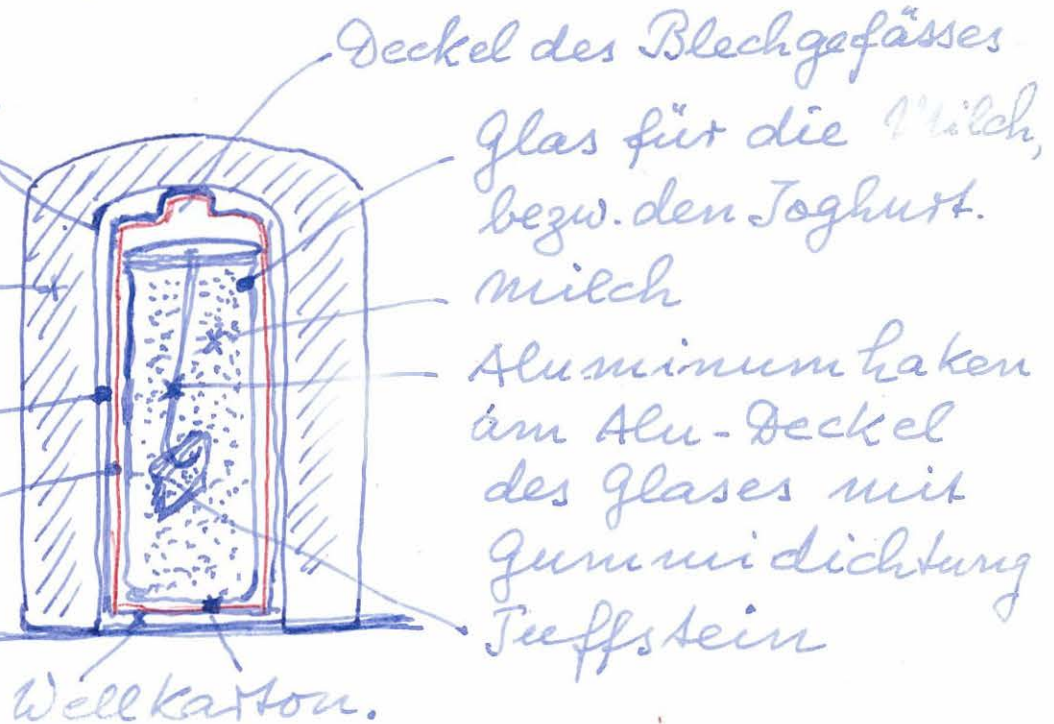 Deckel des Blechgefässes
Glas für die Milch,
bezw. den Joghurt.
Milch
Aluminumhaken
am Alu-Deckel
des Glases mit
Gummidichtung
Tuffstein
Wellkarton.